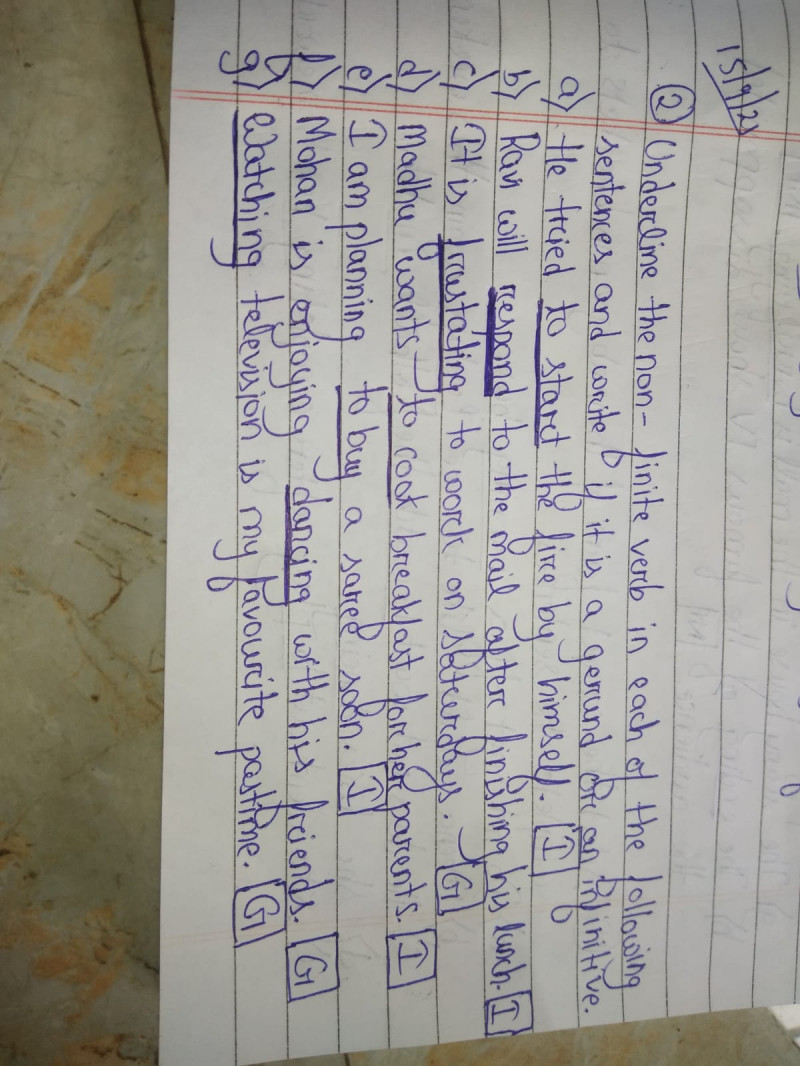 15/9/23
② Underline the non-finite verb in each of the following
sentences and write if it is a gerund or an infinitive.
a) He tried to start the fire by himself. I
b) Ravi will respond to the mail after finishing his lunch. I
c) It is frustating to work on saturdays. G
d) Madhu wants to cook breakfast for her parents. I
e) I am planning to buy a saree soon. I
f) Mohan is enjoying dancing with his friends. G
g) Watching television is my favourite pastime. G